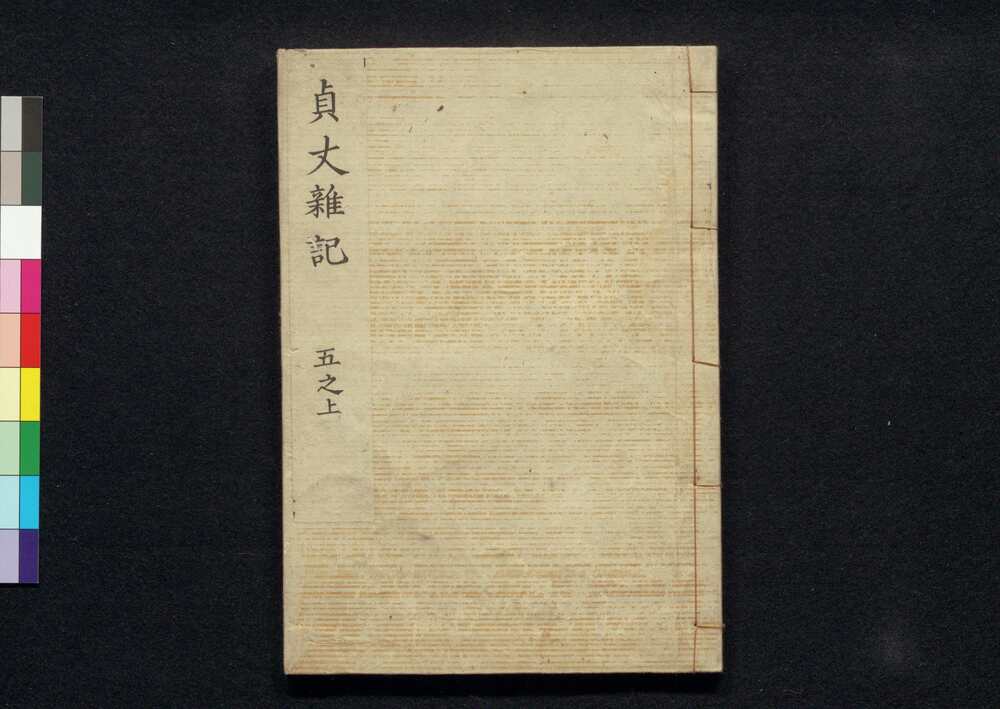 貞丈雜記 五之上